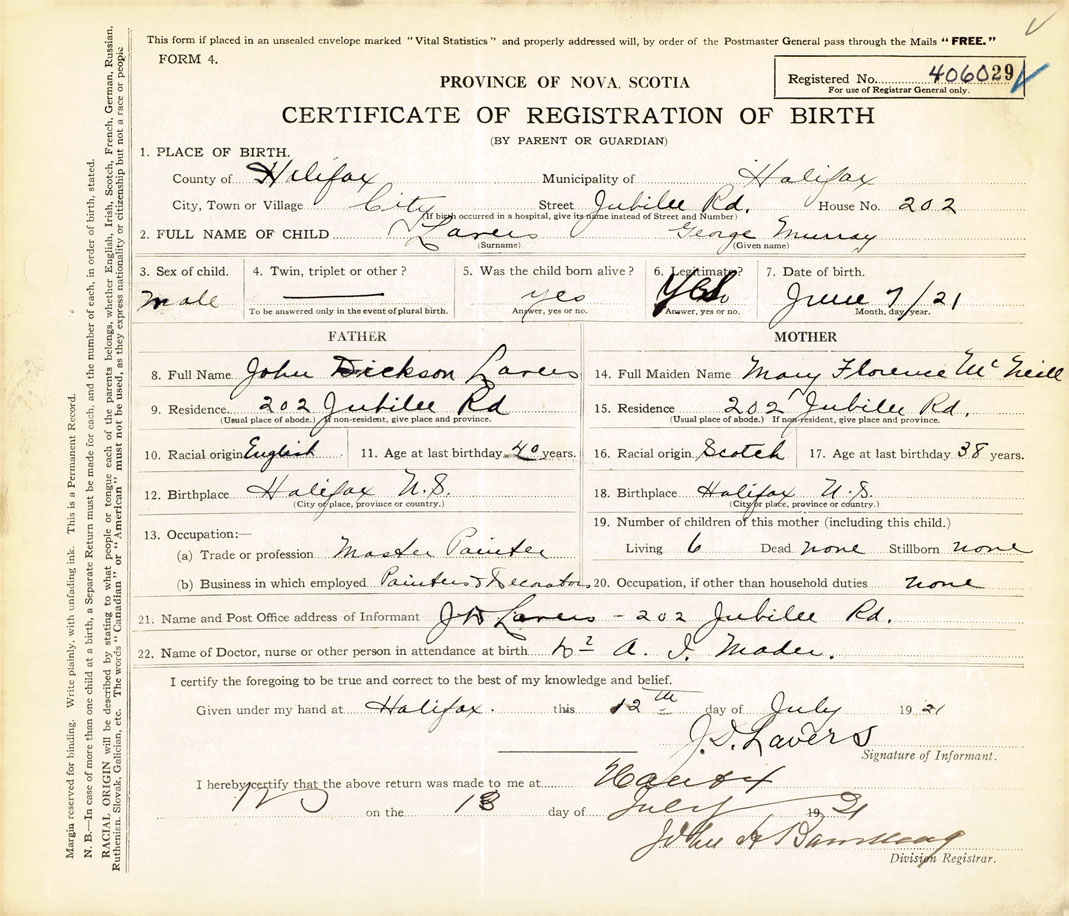 This form if placed in an unsealed envelope marked "Vital Statistics" and properly addressed will, by order of the Postmaster General pass through the Mails "FREE."
FORM 4.
PROVINCE OF NOVA SCOTIA
Registered No. 406029
For use of Registrar General only.
CERTIFICATE OF REGISTRATION OF BIRTH
(BY PARENT OR GUARDIAN)
1. PLACE OF BIRTH.
County of Hilifax Municipality of Halifax
City, Town or Village City Street Jubilee Rd. House No. 202
(If birth occurred in a hospital, give its name instead of Street and Number)
2. FULL NAME OF CHILD Lavers George Murray
(Surname) (Given name)
3. Sex of child. 4. Twin, triplet or other? 5. Was the child born alive? 6. Legitimate? 7. Date of birth.
Male yes Yes June 7/21
To be answered only in the event of plural birth. Answer, yes or no. Answer, yes or no. Month, day, year.
FATHER MOTHER
8. Full Name John Dickson Lavers 14. Full Maiden Name Mary Florence McNeill
9. Residence 202 Jubilee Rd 15. Residence 202 Jubilee Rd.
(Usual place of abode.) If non-resident, give place and province. (Usual place of abode.) If non-resident, give place and province.
10. Racial origin English 11. Age at last birthday 40 years. 16. Racial origin Scotch 17. Age at last birthday 38 years.
12. Birthplace Halifax N.S. 18. Birthplace Halifax N.S.
(City or place, province or country.) (City or place, province or country.)
13. Occupation:— 19. Number of children of this mother (including this child.)
(a) Trade or profession Master Painter Living 6 Dead none Stillborn none
(b) Business in which employed Painters & Decorators 20. Occupation, if other than household duties none
21. Name and Post Office address of Informant J D Lavers - 202 Jubilee Rd.
22. Name of Doctor, nurse or other person in attendance at birth Dr A. I. Mader.
I certify the foregoing to be true and correct to the best of my knowledge and belief.
Given under my hand at Halifax. this 12th day of July 1921
J. D. Lavers
Signature of Informant.
I hereby certify that the above return was made to me at Halifax
on the 13 day of July 1921
John H
Division Registrar.
Margin reserved for binding. Write plainly, with unfading ink. This is a Permanent Record.
N. B.—In case of more than one child at a birth, a Separate Return must be made for each, and the number of each, in order of birth, stated.
RACIAL ORIGIN will be described by stating to what people or tongue each of the parents belongs, whether English, Irish, Scotch, French, German, Russian,
Ruthenian, Slovak, Galician, etc. The words "Canadian" or "American" must not be used, as they express nationality or citizenship but not a race or people